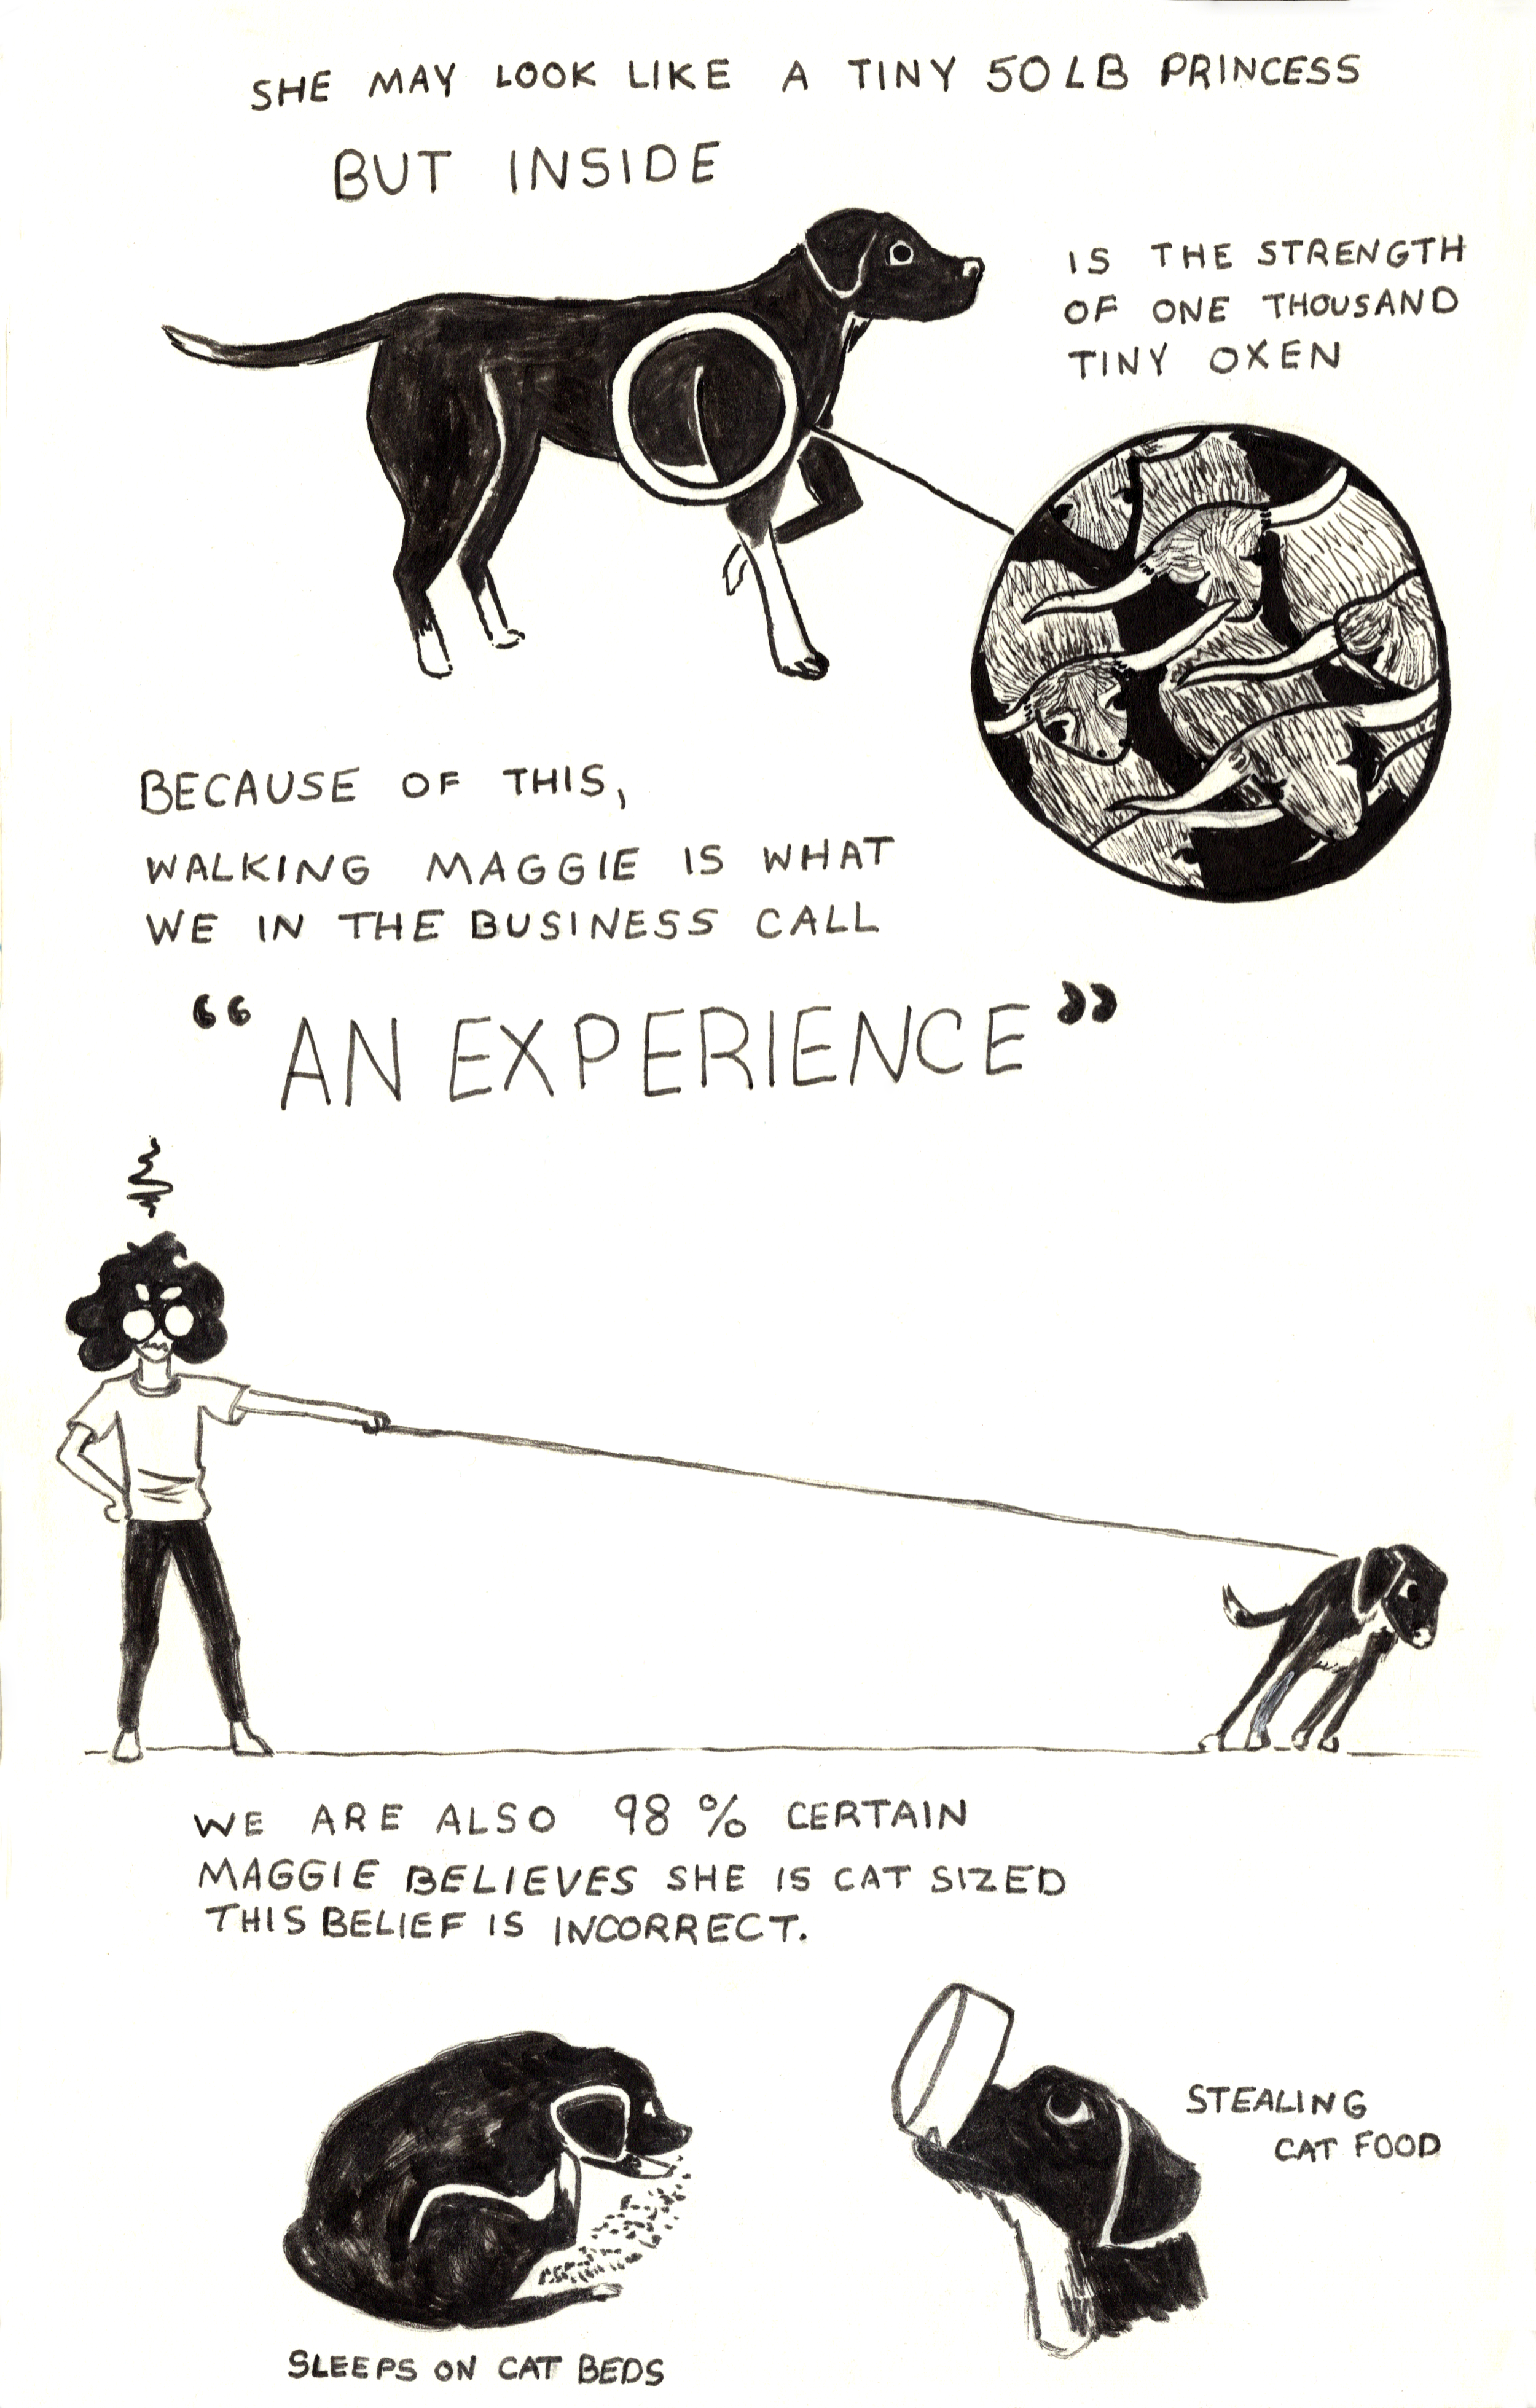 SHE MAY LOOK LIKE A TINY 50LB PRINCESS
BUT INSIDE
IS THE STRENGTH
OF ONE THOUSAND
TINY OXEN
BECAUSE OF THIS,
WALKING MAGGIE IS WHAT
WE IN THE BUSINESS CALL
“AN EXPERIENCE”
WE ARE ALSO 98% CERTAIN
MAGGIE BELIEVES SHE IS CAT SIZED
THIS BELIEF IS INCORRECT.
STEALING
CAT FOOD
SLEEPS ON CAT BEDS